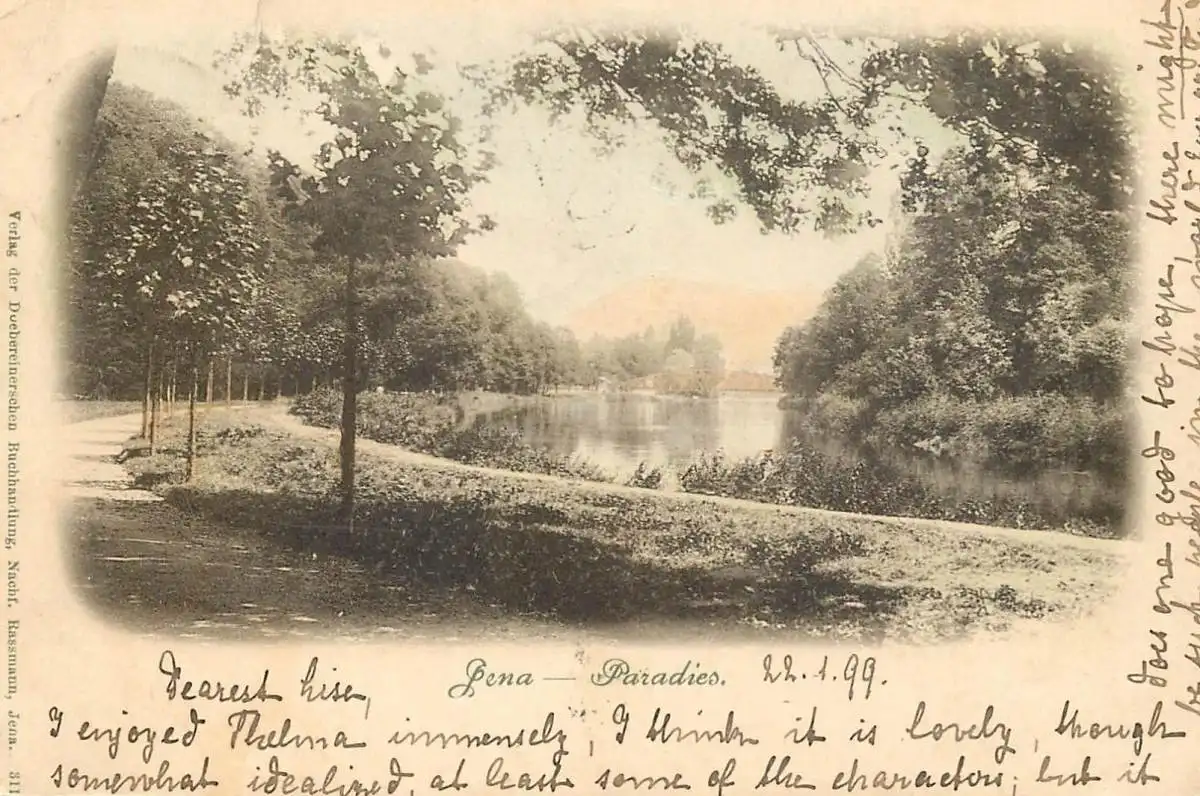 Verlag der Doebereinerschen Buchhandlung, Nachf. Rassmann, Jena. 311
Jena — Paradies. 22.1.99.
Dearest Lise,
I enjoyed Thelma immensely, I think it is lovely, though
somewhat idealized, at least some of the characters; but it
does one good to hope, there might
be such